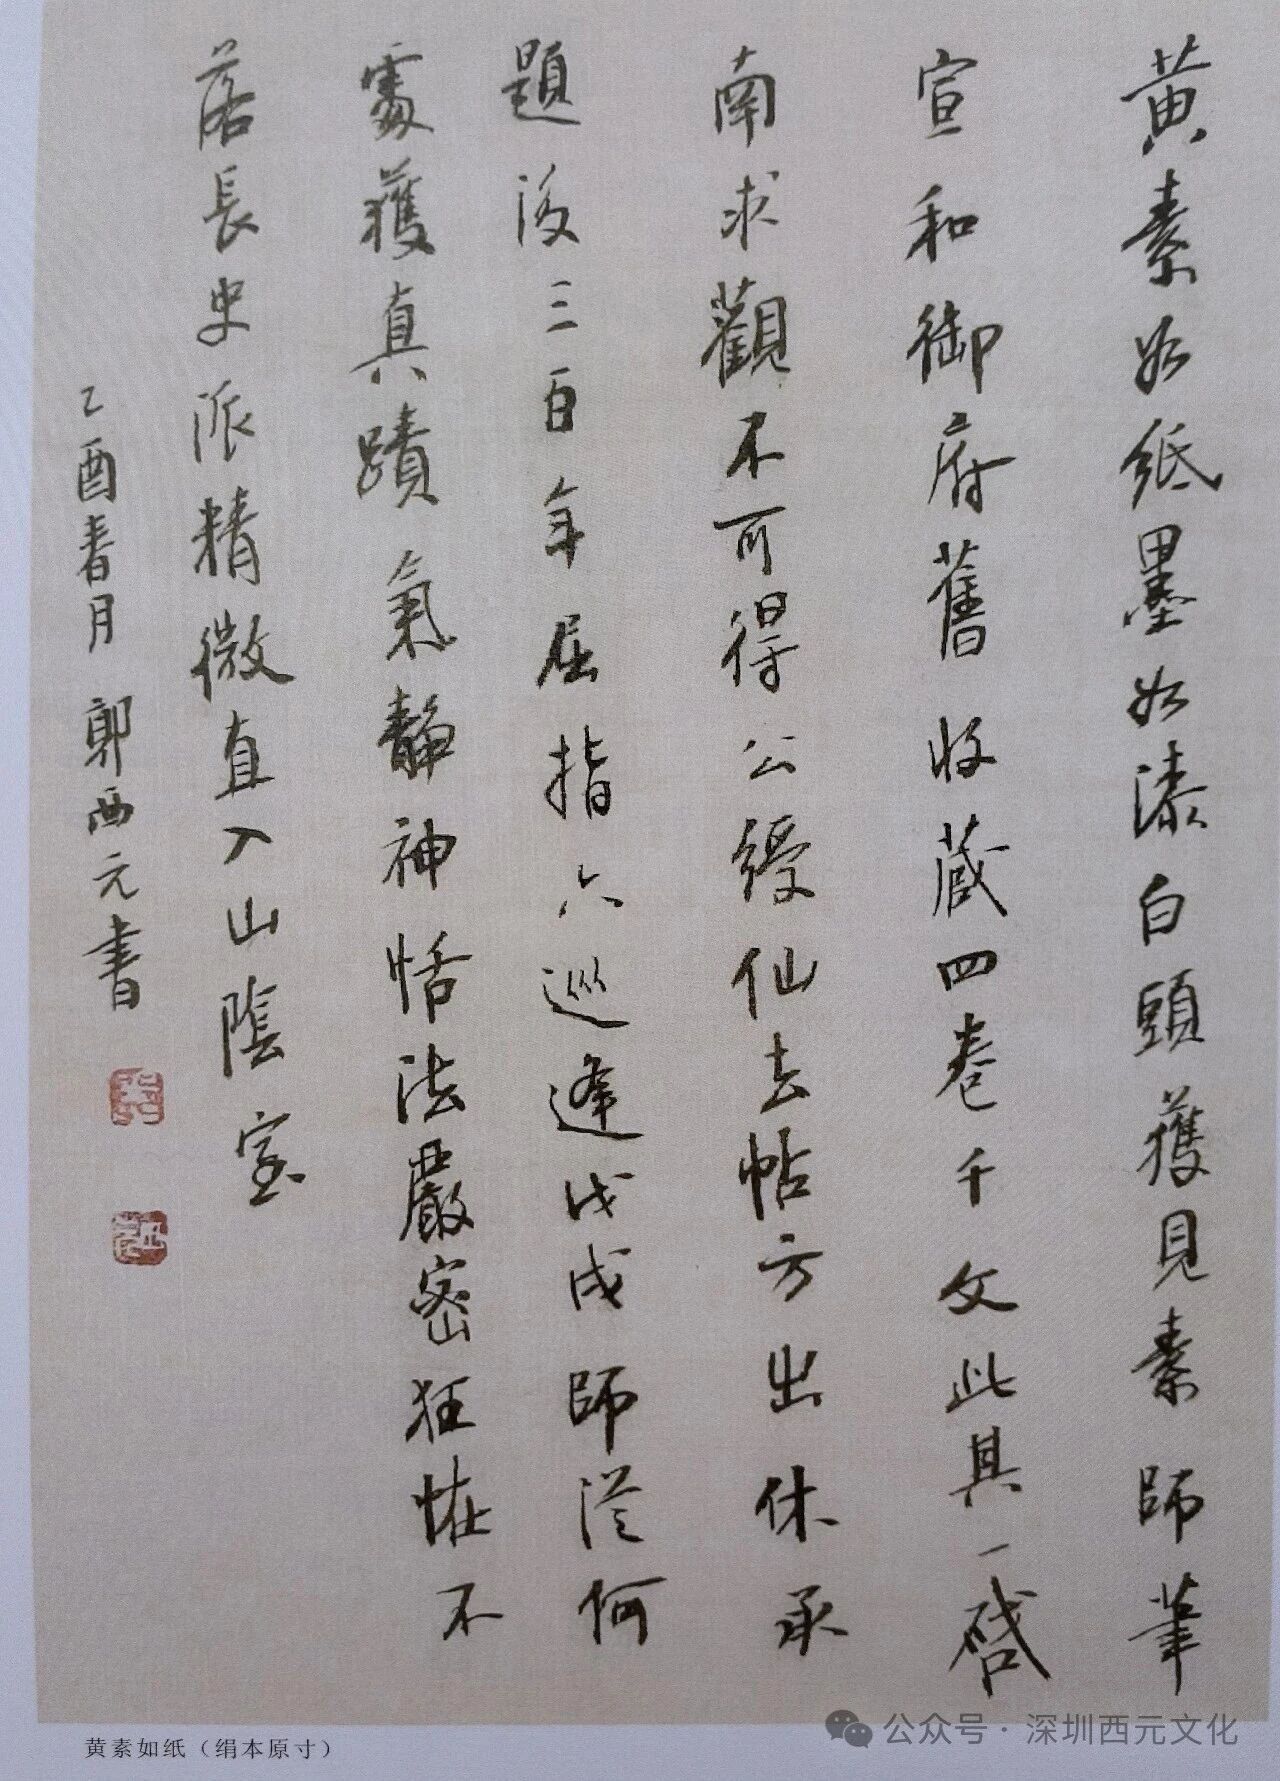 黄素如紙墨如漆白頭獲見素師筆
宣和御府舊收藏四卷千文此其一啓
南求觀不可得公綬仙去帖方出休承
題後三百年屈指六巡逢戊戌師從何
處獲真蹟氣靜神恬法嚴密狂怪不
落長史派精微直入山陰室
乙酉春月 郭西元書
黄素如纸（绢本原寸）
公众号·深圳西元文化